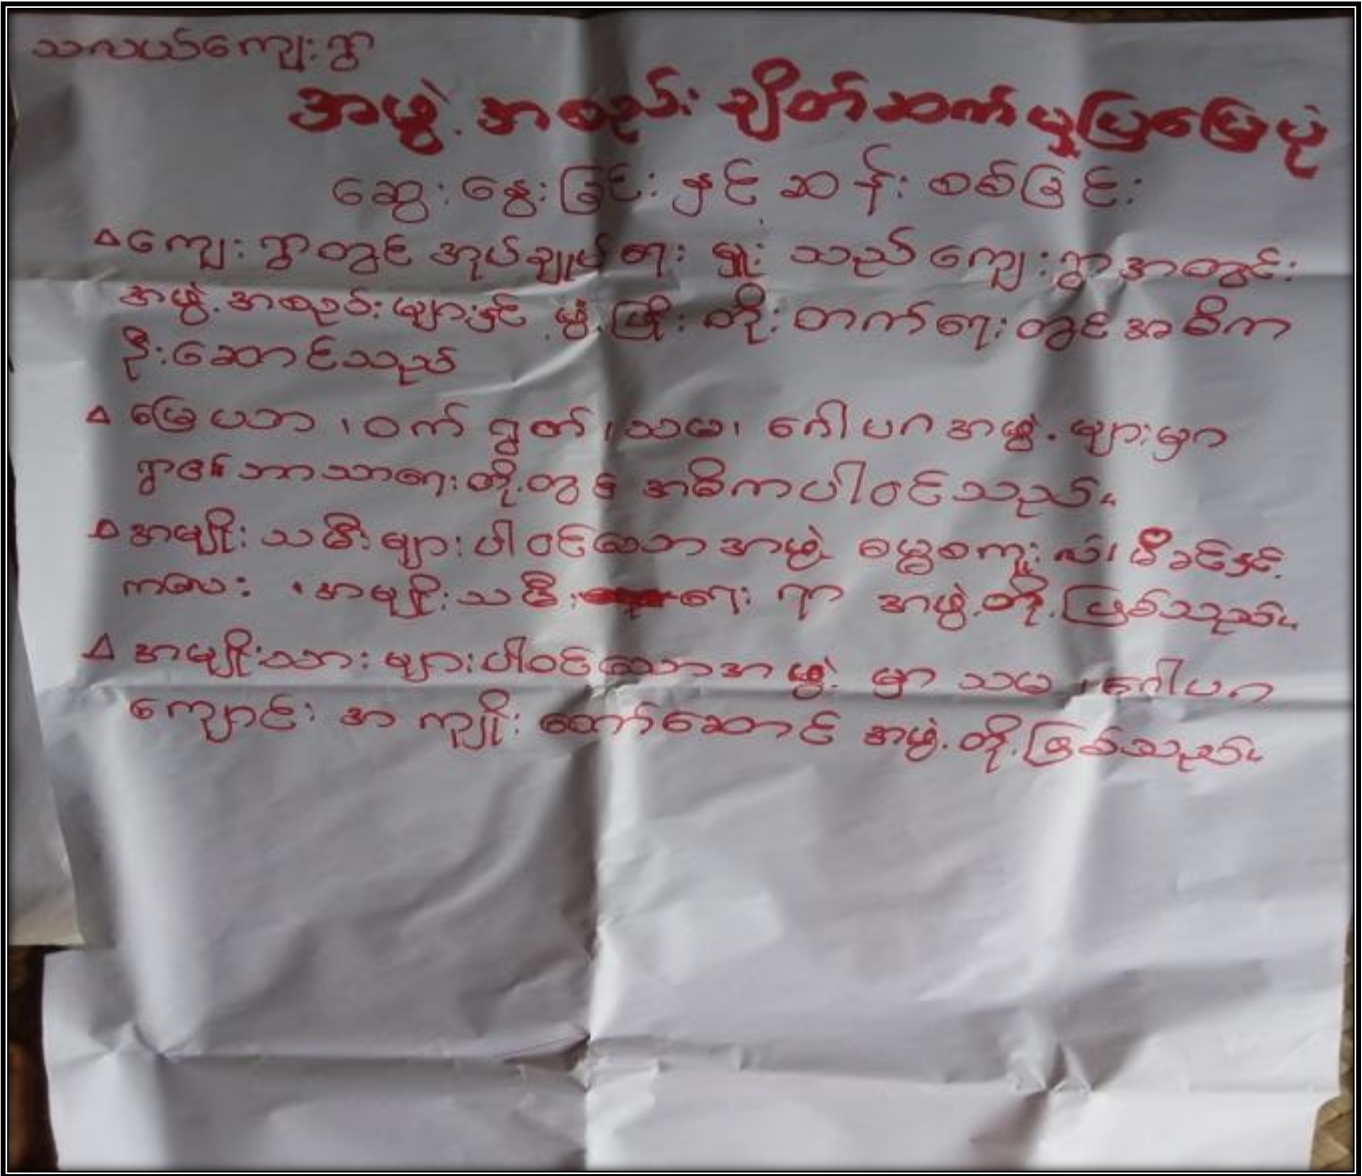 သလယ်ကျေးရွာ
အဖွဲ့အစည်းချိတ်ဆက်မှုပြမြေပုံ
ဆွေးနွေးခြင်းနှင့်ဆန်းစစ်ခြင်း
ကျေးရွာတွင် အုပ်ချုပ်ရေးမှူးသည် ကျေးရွာအတွင်း
အဖွဲ့အစည်းများနှင့် ဖွံ့ဖြိုးတိုးတက်ရေးတွင် အဓိက
ဦးဆောင်သည်
မြေယာ၊ ဝက် ရွတ်၊ သမ၊ ဂေါပကအဖွဲ့များမှာ
ဘာသာရေးတို့တွင် အဓိကပါဝင်သည်။
အမျိုးသမီးများပါဝင်သောအဖွဲ့ ဓမ္မစကူး မိခင်နှင့်
ကလေး၊ အမျိုးသမီးရေးရာ အဖွဲ့တို့ဖြစ်သည်။
အမျိုးသားများပါဝင်သောအဖွဲ့မှာ သမ၊ ဂေါပက
ကျောင်းအကျိုးတော်ဆောင်အဖွဲ့တို့ဖြစ်သည်။